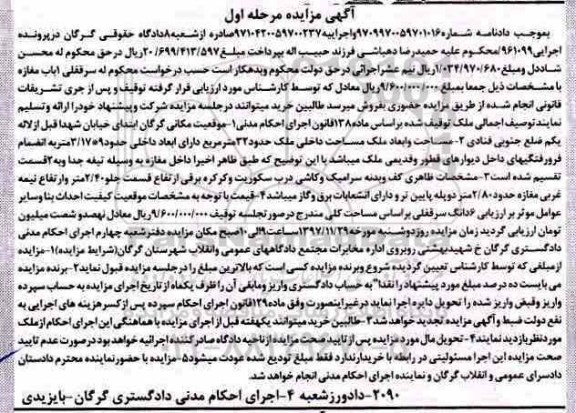 آگهی مزایده مرحله اول
بموجب دادنامه شماره ۹۷۰۹۹۷۰۰۵۹۷۰۱۰۱۶ واجراییه ۹۷۱۰۴۲۰۰۵۹۷۰۰۲۳۷ صادره ازشعبه ۸ دادگاه حقوقی گرگان درپرونده
اجرایی ۹۶۱۰۹۹ محکوم علیه حمیدرضا دهباشی فرزند حبیب اله به پرداخت مبلغ ۲۰/۶۹۹/۴۱۳/۵۹۷ ریال درحق محکوم له محسن
شاددل ومبلغ ۱/۰۳۴/۹۷۰/۶۸۰ ریال نیم عشراجرائی درحق دولت محکوم وبدهکار است حسب درخواست محکوم له سرقفلی ۱ باب مغازه
با مشخصات ذیل جمعا بمبلغ ۹/۶۰۰/۰۰۰/۰۰۰ ریال معادل که توسط کارشناس مورد ارزیابی قرار گرفته توقیف و پس از جری تشریفات
قانونی انجام شده از طریق مزایده حضوری بفروش میرسد طالبین خرید میتوانند درجلسه مزایده شرکت وپیشنهاد خودرا ارائه و تسلیم
نمایند توصیف اجمالی ملک توقیف شده براساس ماده ۱۳۸ قانون اجرای احکام مدنی ۱-موقعیت مکانی گرگان ابتدای خیابان شهدا قبل ازلاله
یکم ضلع جنوبی قنادی ۲- مساحت وابعاد ملک مساحت داخلی ملک حدود ۳۲ مترمربع دارای ابعاد داخلی حدود ۹*۳/۱۷ متربه انضمام
فرورفتگیهای داخل دیوارهای قطور وقدیمی ملک میباشد با این توضیح که طبق ظاهر اخیرا داخل مغازه به وسیله تیغه جدا وبه ۲ قسمت
تقسیم شده است ۳-مشخصات ظاهری کف وبدنه سرامیک وکاشی درب سکوریت وکرکره برقی ارتفاع قسمت جلو ۲/۴۰ متر وارتفاع نیمه
غربی مغازه حدود ۲/۸۰ متر دوپله پایین تر و دارای انشعابات برق وگاز میباشد ۴-قیمت با توجه به مشخصات موقعیت کیفیت احداث بنا وسایر
عوامل موثر بر ارزیابی ۶ دانگ سرقفلی بر اساس مساحت کلی مندرج درصورتجلسه توقیف ۹/۶۰۰/۰۰۰/۰۰۰ ریال معادل نهصدو شصت میلیون
تومان ارزیابی گردید زمان مزایده روزدوشنبه مورخه ۱۳۹۷/۱۱/۲۹ ساعت ۹ الی ۱۰ صبح مکان مزایده دفترشعبه چهارم اجرای احکام مدنی
دادگستری گرگان خ شهیدبهشتی روبروی اداره مخابرات مجتمع دادگاههای عمومی وانقلاب شهرستان گرگان (شرایط مزایده) ۱-مزایده
ازمبلغی که توسط کارشناس تعیین گردیده شروع وبرنده مزایده کسی است که بالاترین مبلغ را درجلسه مزایده قبول نماید ۲-برنده مزایده
می بایست ده درصد مبلغ مورد پیشنهاد را نقدا" به حساب دادگستری واریز ومابقی آن را ظرف یکماه از تاریخ اجرای مزایده به حساب سپرده
واریز وقبض واریز شده را تحویل دایره اجرا نماید درغیراینصورت وفق ماده ۱۲۹ قانون اجرای احکام سپرده پس ازکسرهزینه های اجرایی به
نفع دولت ضبط وآگهی مزایده تجدید خواهد شد ۳-طالبین خرید میتوانند یکهفته قبل از اجرای مزایده با هماهنگی این اجرای احکام از ملک
موردنظربازدید نمایند ۴-تحویل مال مورد مزایده پس از تایید صحت مزایده ازناحیه دادگاه صادرکننده اجرائیه خواهد بود درصورت عدم تایید
صحت مزایده این اجرا مسئولیتی در رابطه با خریدارندارد فقط مبلغ تودیع شده عودت میشود ۵-مزایده با حضورنماینده محترم دادستان
دادسرای عمومی و انقلاب گرگان و نماینده اجرای احکام مدنی انجام خواهد شد.
۲۰۹۰-دادورزشعبه ۴-اجرای احکام مدنی دادگستری گرگان-بایزیدی